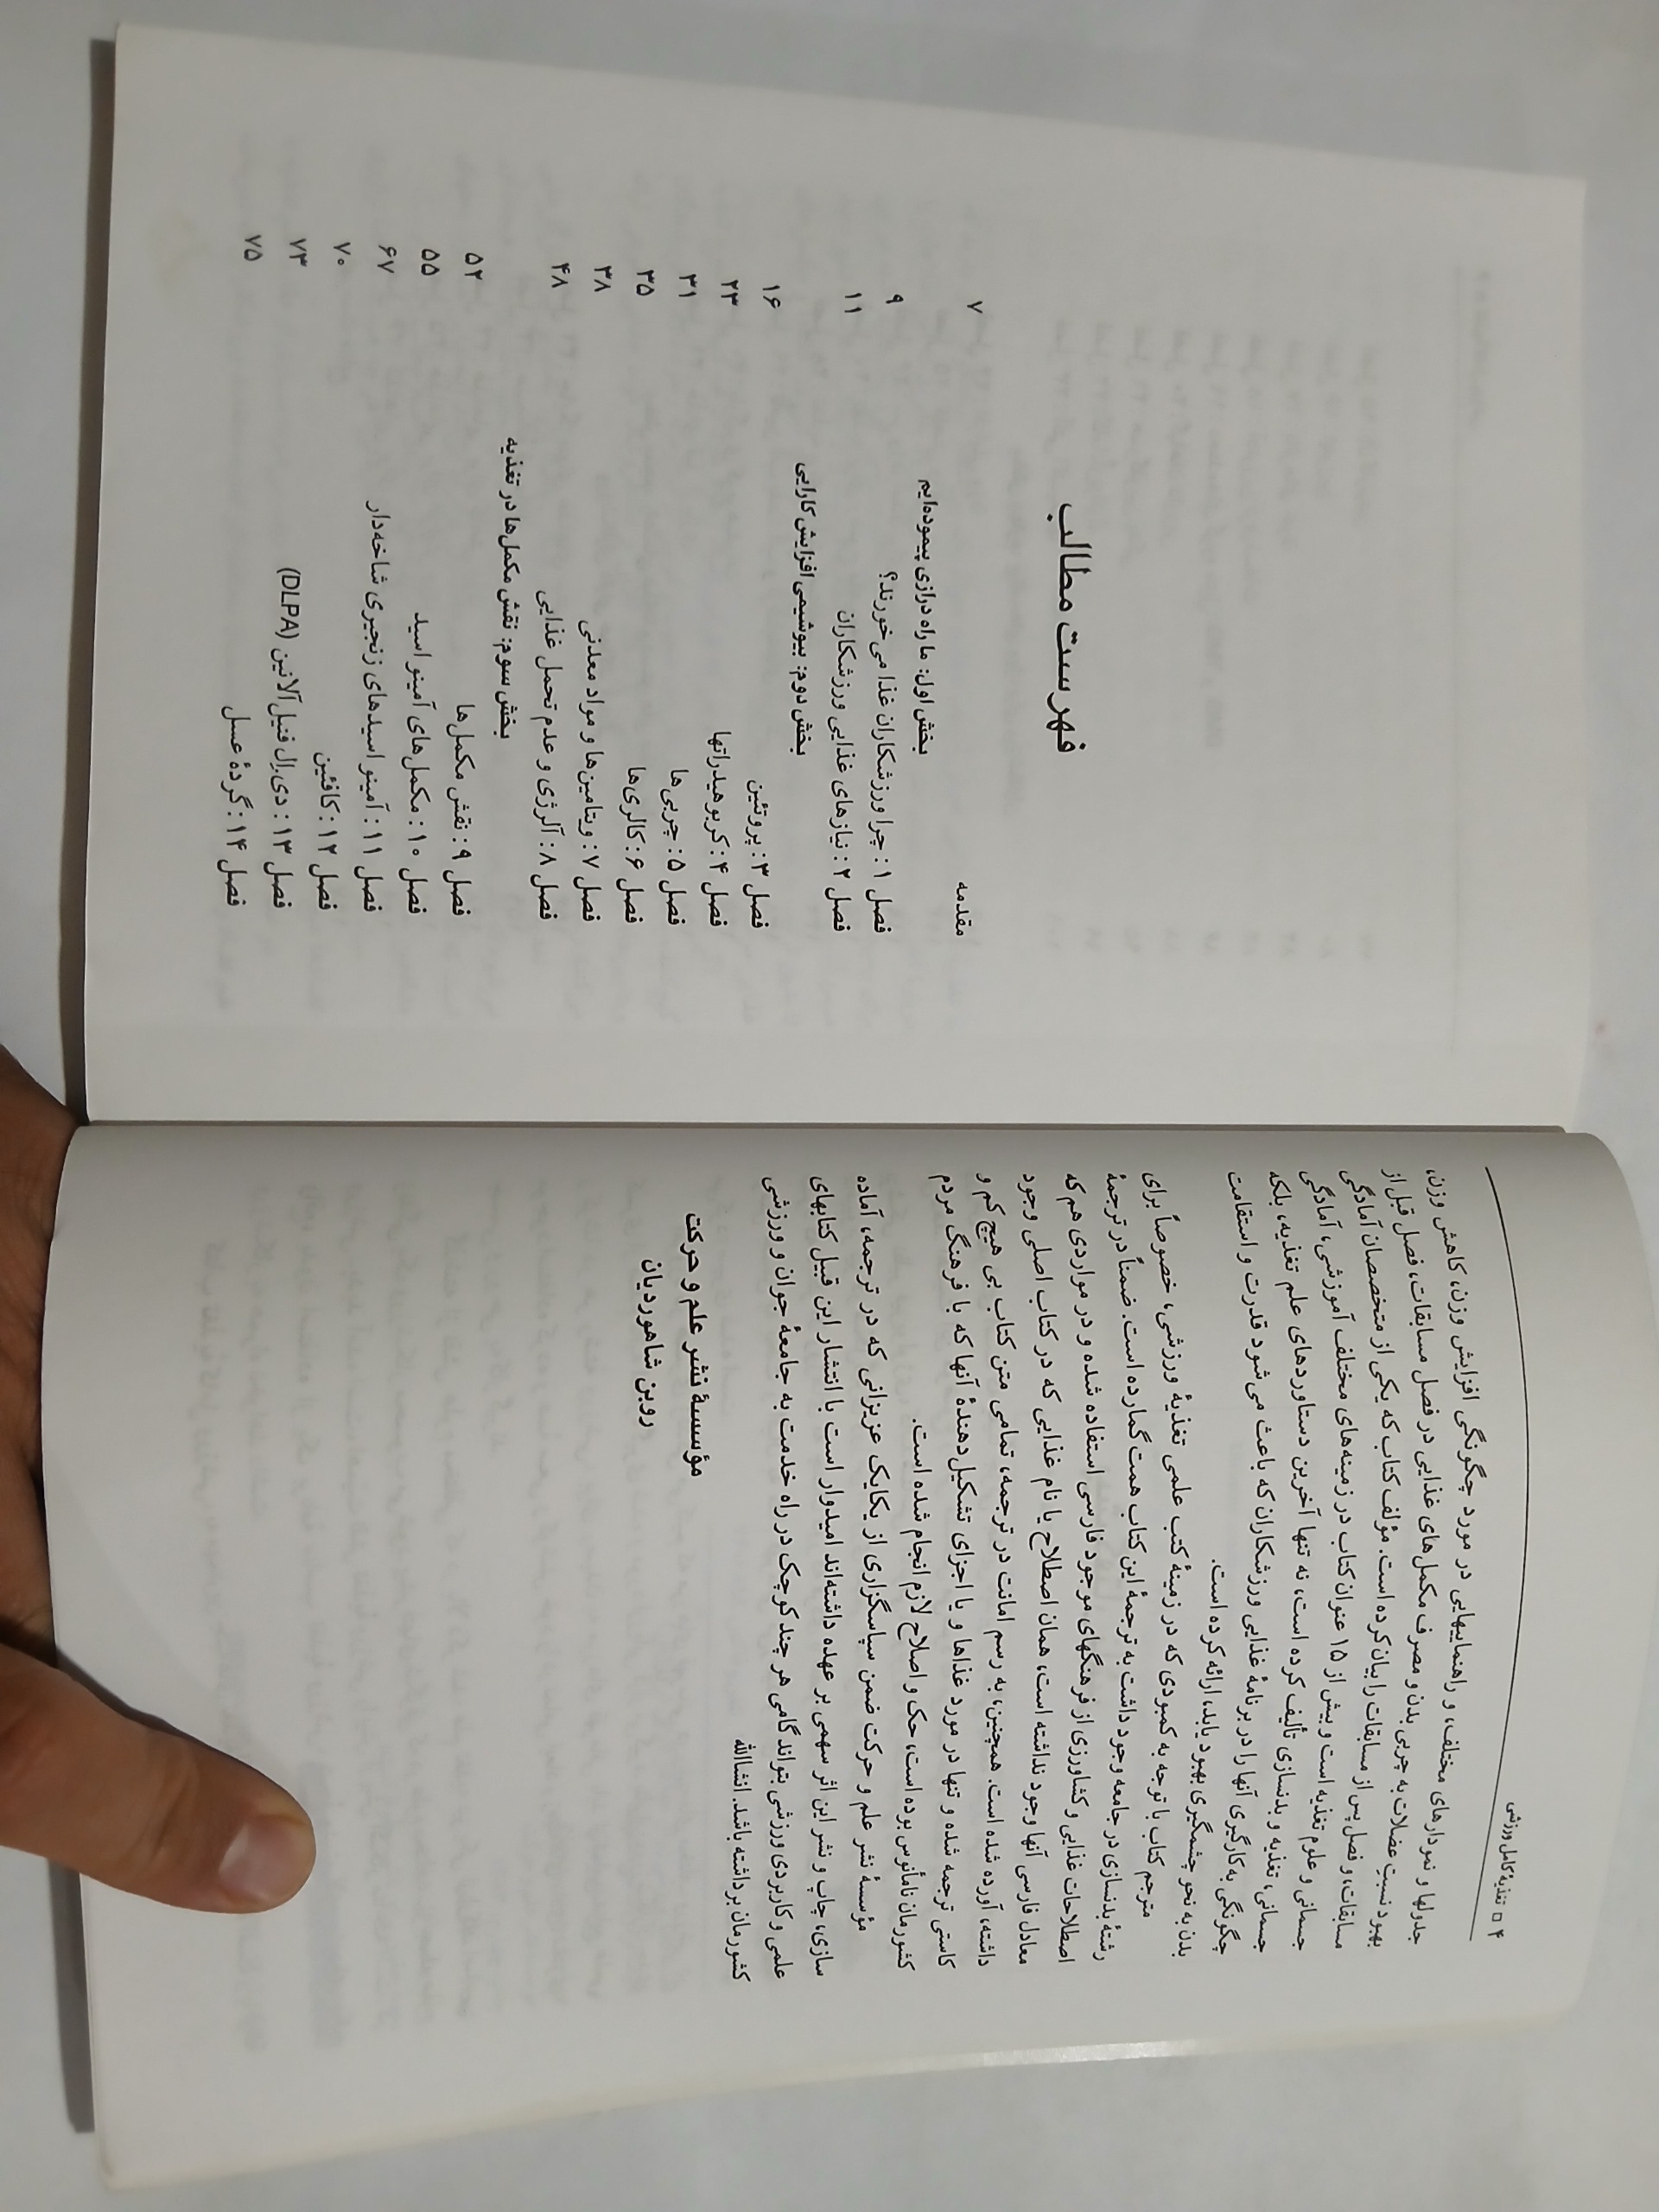 ۴ □ تغذیهٔ کامل ورزشی
جدولها و نمودارهای مختلف، و راهنماییهایی در مورد چگونگی افزایش وزن، کاهش وزن،
بهبود نسبتِ عضلات به چربی بدن و مصرف مکمل‌های غذایی در فصل مسابقات، فصل قبل از
مسابقات، و فصل پس از مسابقات را بیان کرده است. مؤلف کتاب که یکی از متخصصان آمادگی
جسمانی و علوم تغذیه است و بیش از ۱۵ عنوان کتاب در زمینه‌های مختلف آموزشی، آمادگی
جسمانی، تغذیه و بدنسازی تألیف کرده است، نه تنها آخرین دستاوردهای علم تغذیه، بلکه
چگونگی به‌کارگیری آنها را در برنامهٔ غذایی ورزشکاران که باعث می‌شود قدرت و استقامت
بدن به نحو چشمگیری بهبود یابد، ارائه کرده است.
مترجم کتاب با توجه به کمبودی که در زمینهٔ کتب علمی تغذیهٔ ورزشی، خصوصاً برای
رشتهٔ بدنسازی در جامعه وجود داشت به ترجمهٔ این کتاب همت گمارده است. ضمناً در ترجمهٔ
اصطلاحات غذایی و کشاورزی از فرهنگهای موجود فارسی استفاده شده و در مواردی هم که
معادل فارسی آنها وجود نداشته است، همان اصطلاح یا نام غذایی که در کتاب اصلی وجود
داشته، آورده شده است. همچنین، به رسم امانت در ترجمه، تمامی متن کتاب بی هیچ کم و
کاستی ترجمه شده و تنها در مورد غذاها و یا اجزای تشکیل‌دهندهٔ آنها که با فرهنگ مردم
کشورمان نامأنوس بوده است، حک و اصلاح لازم انجام شده است.
مؤسسهٔ نشر علم و حرکت ضمن سپاسگزاری از یکایک عزیزانی که در ترجمه، آماده
سازی، چاپ و نشر این اثر سهمی بر عهده داشته‌اند امیدوار است با انتشار این قبیل کتابهای
علمی و کاربردی ورزشی بتواند گامی هر چند کوچک در راه خدمت به جامعهٔ جوان و ورزشی
کشورمان برداشته باشد. انشاالله
مؤسسهٔ نشر علم و حرکت
روبن شاهوردیان
فهرست مطالب
مقدمه ۷
بخش اول: ما راه درازی پیموده‌ایم
فصل ۱: چرا ورزشکاران غذا می‌خورند؟ ۹
فصل ۲: نیازهای غذایی ورزشکاران ۱۱
بخش دوم: بیوشیمی افزایش کارایی
فصل ۳: پروتئین ۱۶
فصل ۴: کربوهیدراتها ۲۳
فصل ۵: چربی‌ها ۳۱
فصل ۶: کالری‌ها ۳۵
فصل ۷: ویتامین‌ها و مواد معدنی ۳۸
فصل ۸: آلرژی و عدم تحمل غذایی ۴۸
بخش سوم: نقش مکمل‌ها در تغذیه
فصل ۹: نقش مکمل‌ها ۵۲
فصل ۱۰: مکمل‌های آمینو اسید ۵۵
فصل ۱۱: آمینو اسیدهای زنجیری شاخه‌دار ۶۷
فصل ۱۲: کافئین ۷۰
فصل ۱۳: دی.اِل فنیل‌آلانین (DLPA) ۷۳
فصل ۱۴: گردهٔ عسل ۷۵